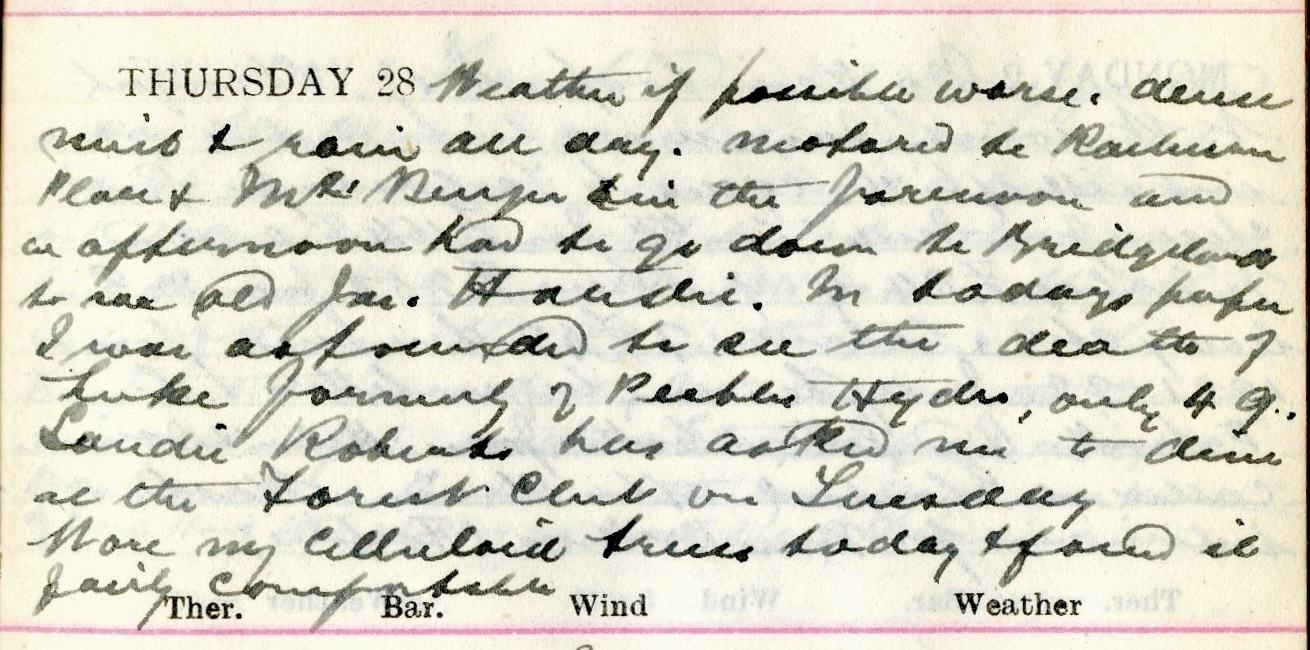 THURSDAY 28 Weather if possible worse. dense
mist & rain all day. motored to
Place & Mrs Berger in the forenoon and
in afternoon had to go down to Bridgend
to see old Jas. Haudie. In todays paper
I was astounded to see the death of
Luke formerly of Peebles Hydro, only 49.
Sandie Roberts has asked me to dine
at the Forest Club on Tuesday
Wore my Celluloid truss today & found it
fairly comfortable
Ther. Bar. Wind Weather